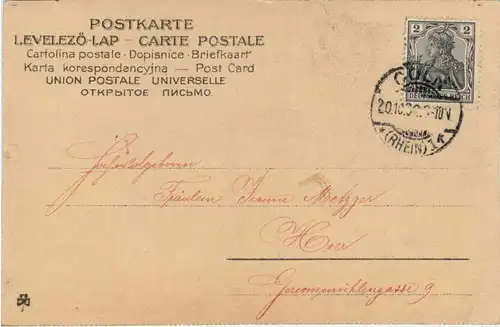 POSTKARTE
LEVELEZŐ-LAP — CARTE POSTALE
Cartolina postale · Dopisnice · Briefkaart
Karta korespondencyjna — Post Card
UNION POSTALE UNIVERSELLE
ОТКРЫТОЕ ПИСЬМО.
2 2
DEUTSCHES REICH
CÖLN
20.10.
9-10V
* (RHEIN) 1
Fräulein Metzger
Hier
9